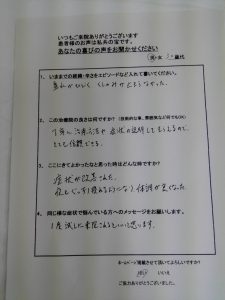 いつもご来院ありがとうございます
患者様のお声は私共の宝です。
あなたの喜びの声をお聞かせください
男・女
歳代
1、いままでの経緯・辛さをエピソードなど入れて書いてください。
鼻水がひどく くしゃみが止らなかった。
2、この治療院の良さは何ですか？（技術的な事、雰囲気など何でもOK）
丁寧に治療方法や症状の説明してもらえるので、
とても信頼できる。
3、ここにきてよかったなと思った時はどんな時ですか？
症状が改善された。
夜もぐっすり寝れるようになり体調が良くなった
4、同じ様な症状で悩んでいる方へのメッセージをお願いします。
1度試しに来院されるといいと思います。
ホームページ掲載させて頂いてよろしいですか？
はい
いいえ
ご協力ありがとうございました。